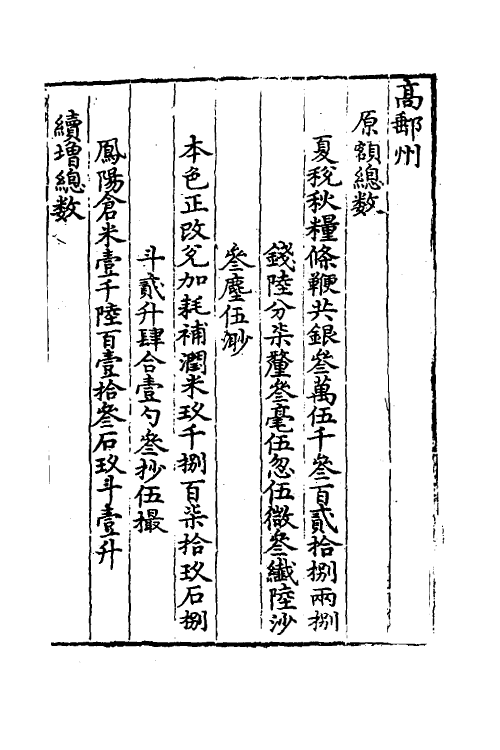 高郵州
原額總数
夏稅秋糧條鞭共銀叁萬伍千叁百貳拾捌兩捌
錢陸分柒釐叁毫伍忽伍微叁纖陸沙
叁塵伍渺
本色正改兌加耗補潤米玖千捌百柒拾玖石捌
斗貳升肆合壹勺叁抄伍撮
鳳陽倉米壹千陸百壹拾叁石玖斗壹升
續增總数